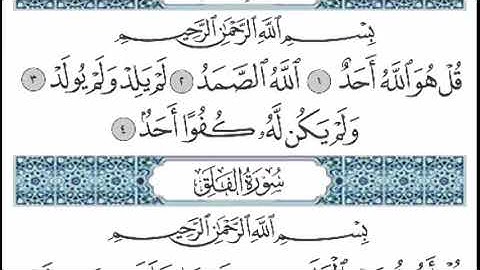 بِسْمِ ٱللَّهِ ٱلرَّحْمَٰنِ ٱلرَّحِيمِ
قُلْ هُوَ ٱللَّهُ أَحَدٌ ١ ٱللَّهُ ٱلصَّمَدُ ٢ لَمْ يَلِدْ وَلَمْ يُولَدْ ٣
وَلَمْ يَكُن لَّهُۥ كُفُوًا أَحَدٌۢ ٤
سُورَةُ الفَلَقِ
بِسْمِ ٱللَّهِ ٱلرَّحْمَٰنِ ٱلرَّحِيمِ